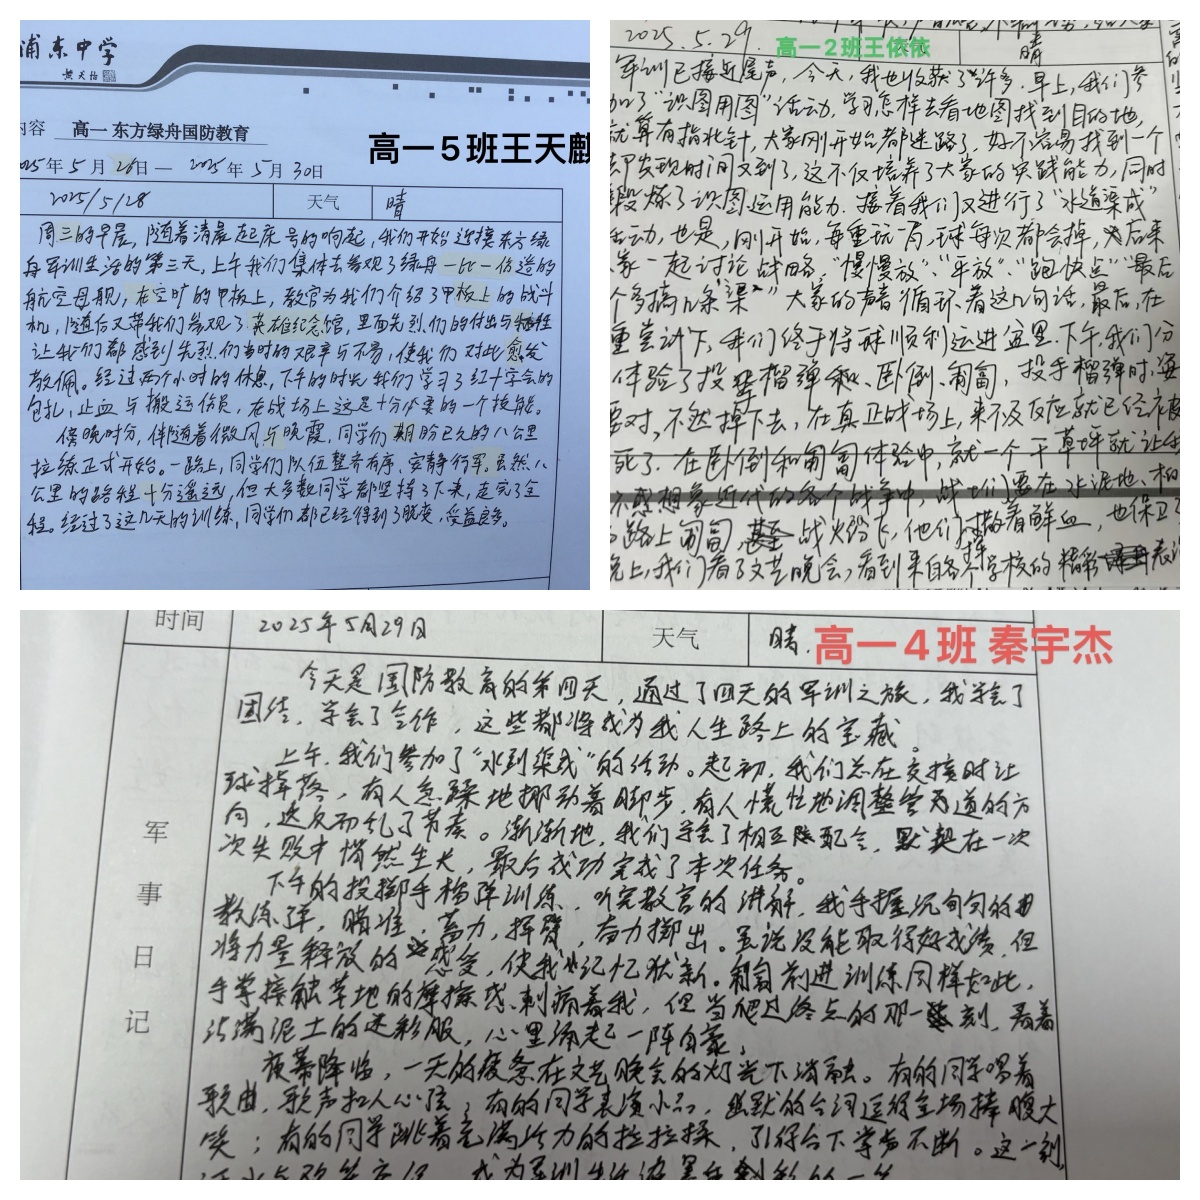 浦东中学
黄炎培
内容 高一 东方绿舟国防教育
高一5班王天麒
2025年5月26日 — 2025年5月30日
2025/5/28 天气 晴
周三的早晨，随着清晨起床号的响起，我们开始迎接东方绿
舟军训生活的第三天，上午我们集体去参观了绿舟一比一仿造的
航空母舰，在空旷的甲板上，教官为我们介绍了甲板上的战斗
机，随后又带我们参观了英雄纪念馆，里面先烈们的付出与牺牲
让我们都感到先烈们当时的艰辛与不易，使我们对此愈发
敬佩。经过两个小时的休息，下午的时光我们学习了红十字会的
包扎，止血与搬运伤员，在战场上这是十分必要的一个技能。
傍晚时分，伴随着微风与晚霞，同学们期盼已久的八公里
拉练正式开始。一路上，同学们队伍整齐有序、安静行军。虽然八
公里的路程十分遥远，但大多数同学都坚持了下来，走完了全
程。经过了这几天的训练，同学们都已经得到了脱变，受益良多。
2025.5.29. 高一2班王依依 晴
军训已接近尾声，今天，我也收获了许多.早上，我们参
加了“识图用图”活动，学习怎样去看地图找到目的地，
就算有指北针，大家刚开始都迷路了，好不容易找到一个
却发现时间又到了，这不仅培养了大家的实践能力，同时
锻炼了识图运用能力.接着我们又进行了“水道渠成”
活动，也是，刚开始，每重玩一局，球每次都会掉，后来
大家一起讨论战略，“慢慢放”、“平放”、“跑快点”“最后
个多搞几条渠”大家的声音循环着这几句话，最后，在
重尝试下，我们终于将球顺利运进盆里.下午，我们分
体验了投掷手榴弹和、卧倒、匍匐，投手榴弹时，姿
要对，不然掉下去，在真正战场上，来不及反应就已经被
死了.在卧倒和匍匐体验中，就一个干草坪就让我
不感想象近代的各个战争中，战士们要在水泥地、
路上匍匐，甚至战火纷飞，他们挥撒着鲜血，也保卫了
晚上，我们看了文艺晚会，看到来自各个学校的精彩表演
时间 2025年5月29日 天气 晴. 高一4班 秦宇杰
军事日记
今天是国防教育的第四天，通过了四天的军训之旅，我学会了
团结，学会了合作，这些都将成为我人生路上的宝藏。
上午，我们参加了“水到渠成”的活动。起初，我们总在交接时让
球掉落，有人急躁地挪动着脚步，有人慌忙地调整管道的方
向，送反而乱了节奏。渐渐地，我们学会了相互配合，默契在一次
次失败中悄然生长，最后成功完成了本次任务。
下午的投掷手榴弹训练，听完教官的讲解，我手握沉甸甸的
教练弹，瞄准，蓄力，挥臂，奋力掷出。虽说没能取得好成绩，但
将力量释放的感受，使我记忆犹新。匍匐前进训练同样如此，
手掌接触草地的摩擦感刺痛着我，但当爬过终点的那一刻，看着
沾满泥土的迷彩服，心里涌起一阵自豪。
夜幕降临，一天的疲惫在文艺晚会的灯光下消融。有的同学唱着
歌曲，歌声扣人心弦；有的同学表演小品，幽默的台词逗得全场捧腹大
笑；有的同学跳着充满活力的拉拉操，引得台下掌声不断。这一刻，